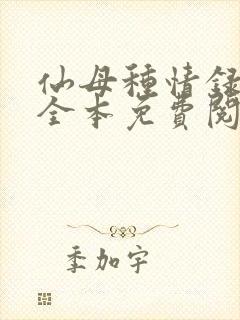 仙母種情録
全本免費閱
季加宇